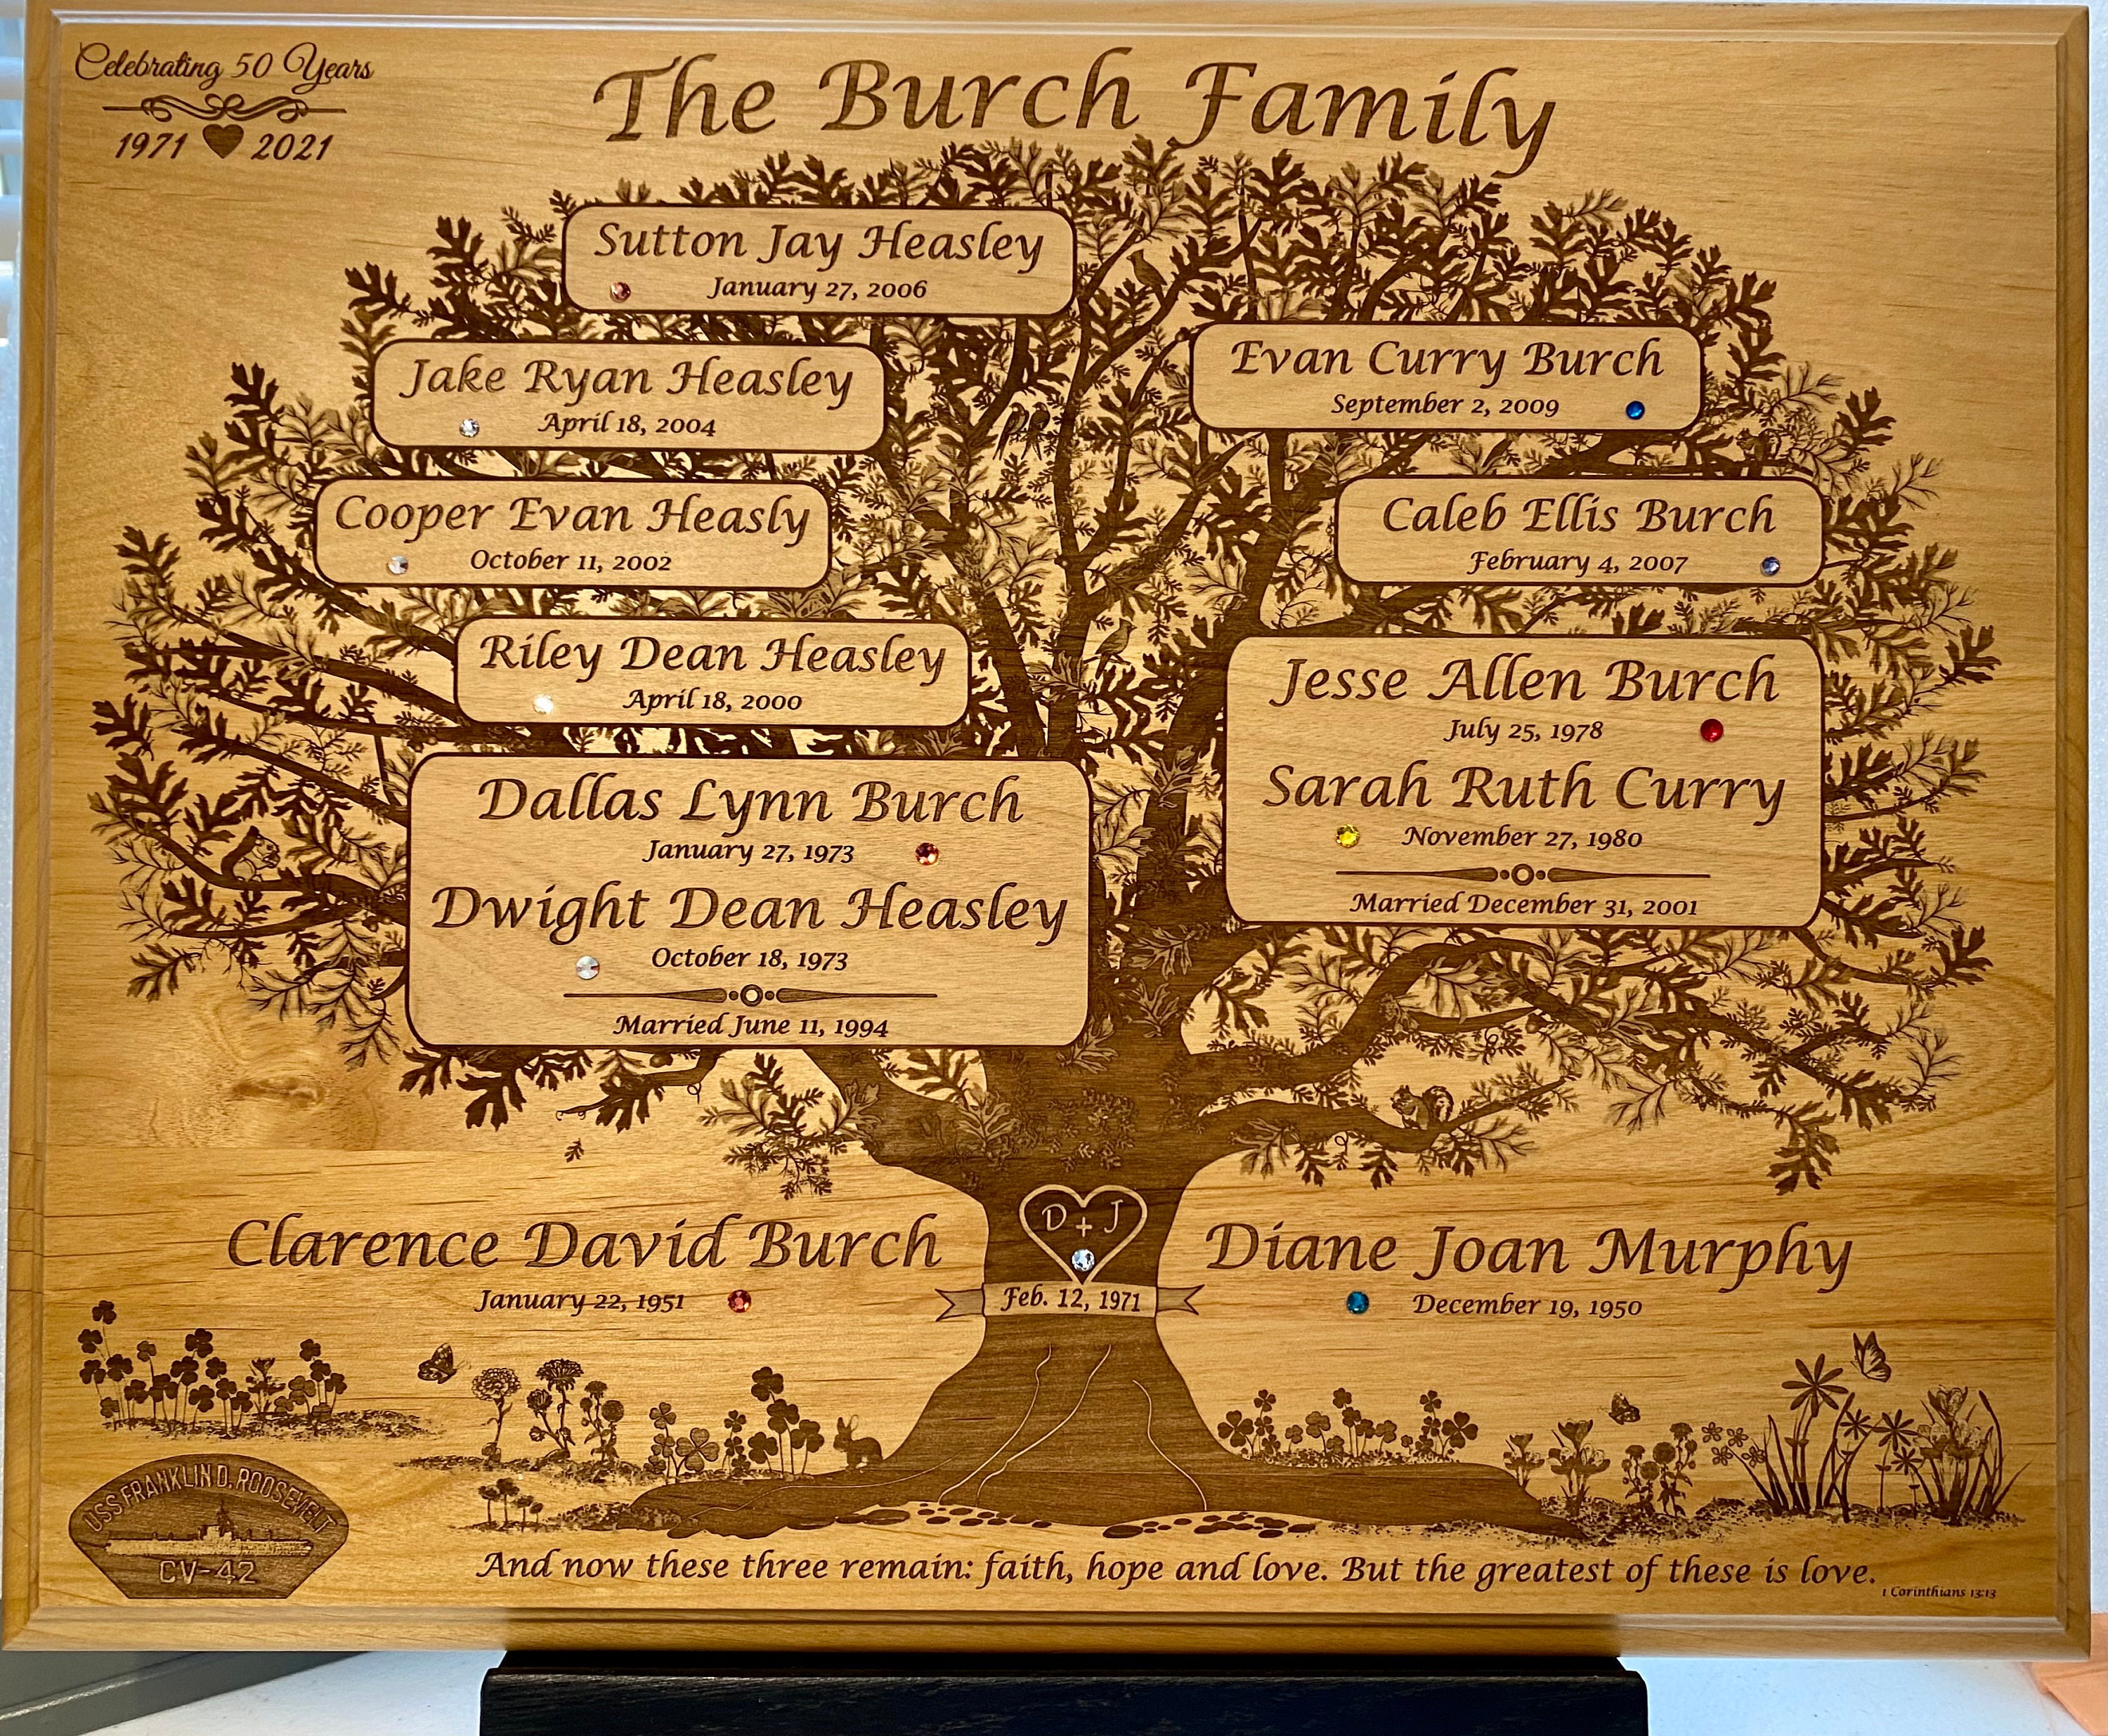 Celebrating 50 Years
1971 2021
The Burch Family
Sutton Jay Heasley
January 27, 2006
Jake Ryan Heasley
April 18, 2004
Cooper Evan Heasly
October 11, 2002
Riley Dean Heasley
April 18, 2000
Dallas Lynn Burch
January 27, 1973
Dwight Dean Heasley
October 18, 1973
Married June 11, 1994
Evan Curry Burch
September 2, 2009
Caleb Ellis Burch
February 4, 2007
Jesse Allen Burch
July 25, 1978
Sarah Ruth Curry
November 27, 1980
Married December 31, 2001
Clarence David Burch
January 22, 1951
D + J
Feb. 12, 1971
Diane Joan Murphy
December 19, 1950
USS FRANKLIN D. ROOSEVELT
CV-42
And now these three remain: faith, hope and love. But the greatest of these is love.
1 Corinthians 13:13